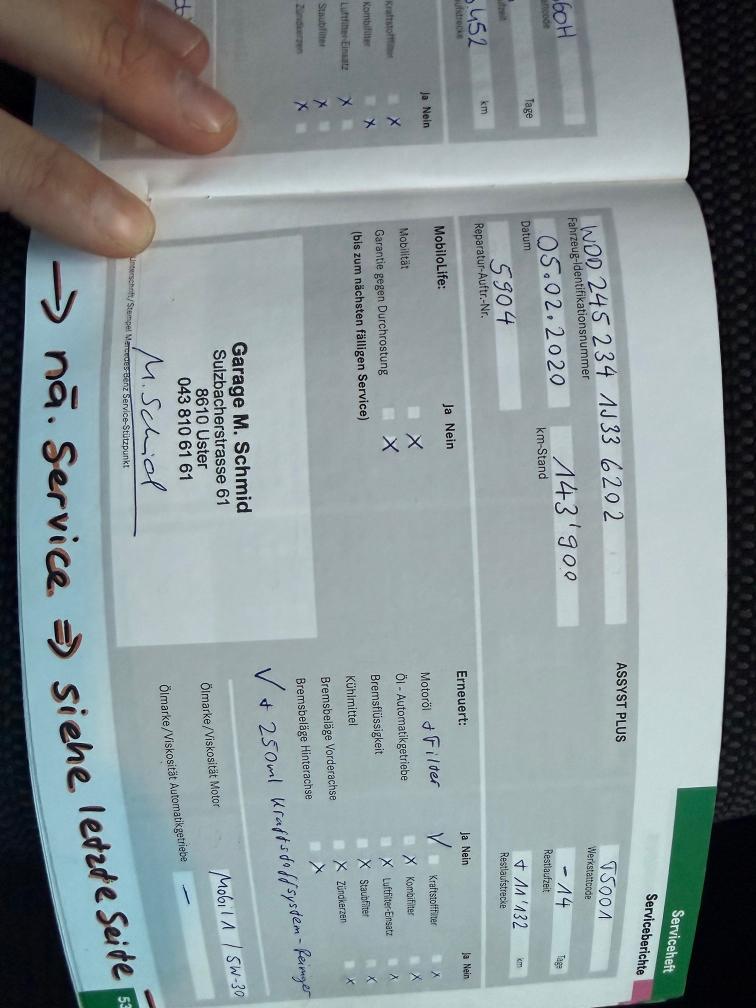 Serviceheft
Serviceberichte
60H
Tage
452
km
Ja Nein
Kraftstofffilter
Kombifilter
Luftfilter-Einsatz
Staubfilter
Zündkerzen
WDD 245 234 1J33 6202
Fahrzeug-Identifikationsnummer
05.02.2020
Datum
143'900
km-Stand
5904
Reparatur-Auftr.-Nr.
ASSYST PLUS
TS001
Werkstattcode
-14 Tage
Restlaufzeit
+ 11'132 km
Restlaufstrecke
MobiloLife:
Ja Nein
Mobilität
Garantie gegen Durchrostung
(bis zum nächsten fälligen Service)
Garage M. Schmid
Sulzbacherstrasse 61
8610 Uster
043 810 61 61
M. Schmid
Unterschrift/Stempel Mercedes-Benz Service-Stützpunkt
Erneuert:
Ja Nein
Ja Nein
Motoröl + Filter
Kraftstofffilter
Öl - Automatikgetriebe
Kombifilter
Bremsflüssigkeit
Luftfilter-Einsatz
Kühlmittel
Staubfilter
Bremsbeläge Vorderachse
Zündkerzen
Bremsbeläge Hinterachse
√ + 250ml Kraftstoffsystem-Reiniger
Ölmarke/Viskosität Motor
Mobil 1 / 5W-30
Ölmarke/Viskosität Automatikgetriebe
–
→ nä. Service ⇒ siehe letzte Seite
53